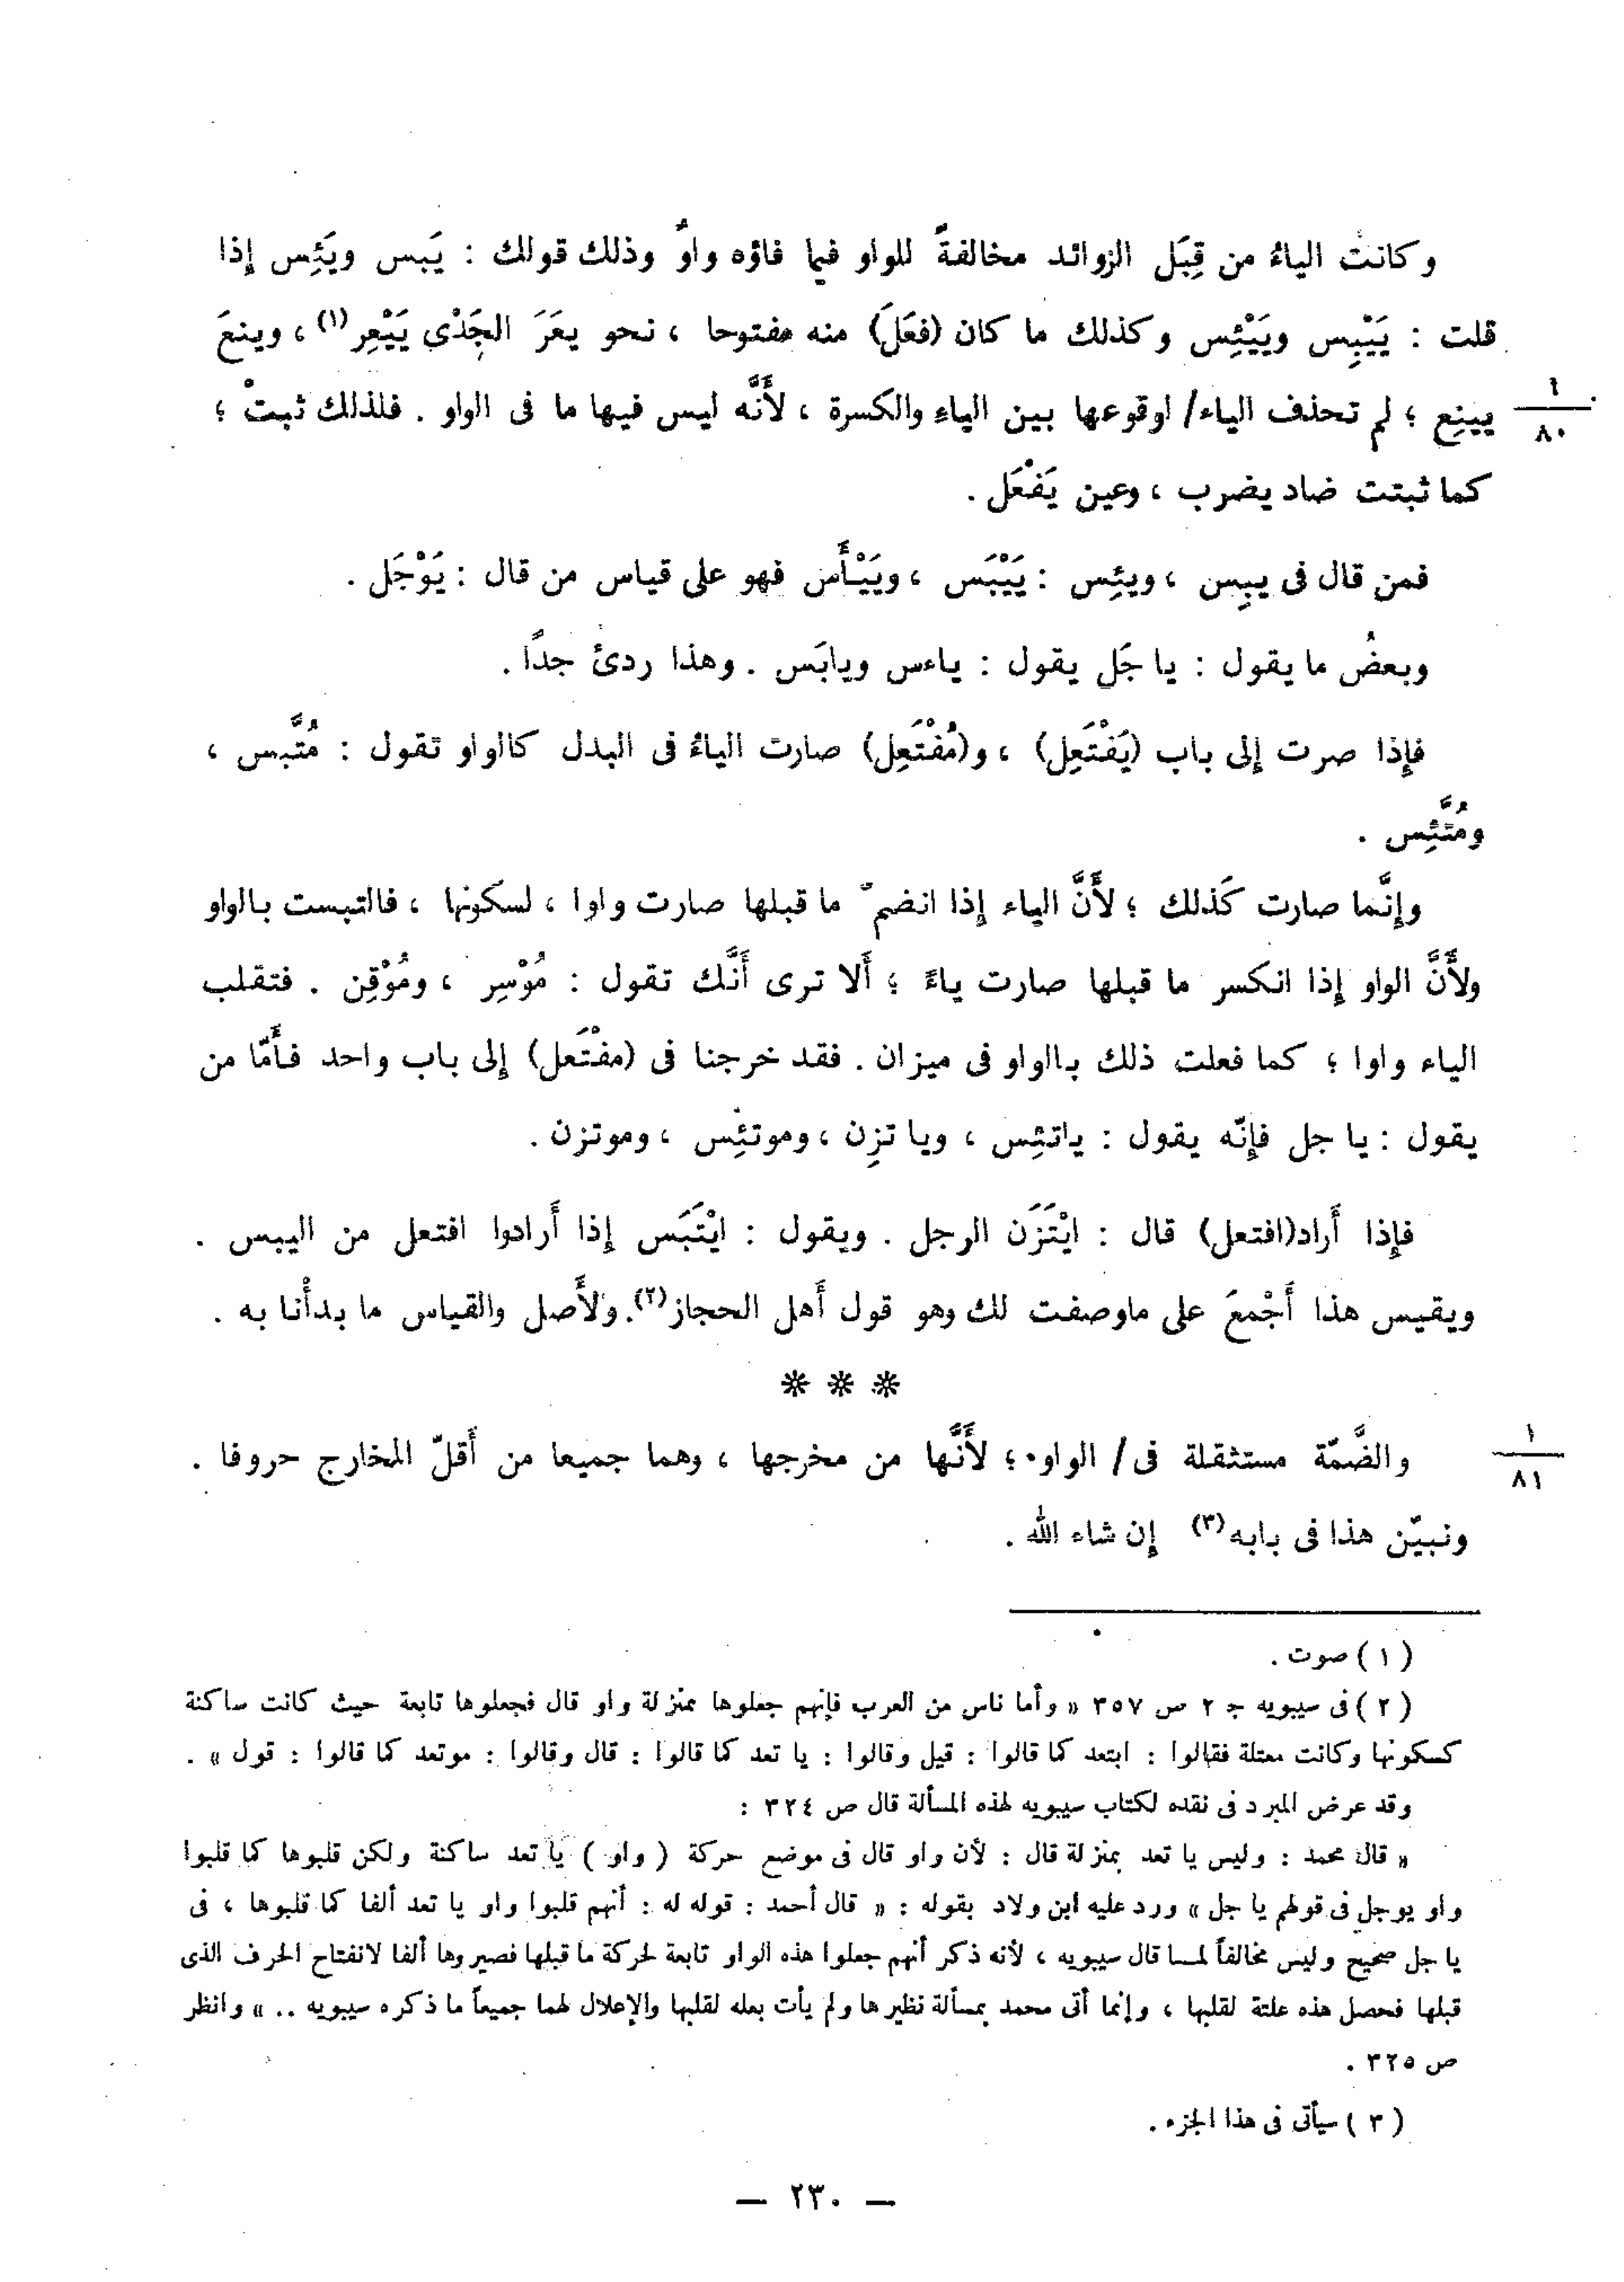 وكانت الياءُ من قِبَل الزوائد مخالفةً للواو فيما فاؤه واوٌ وذلك قولك : يَبس ويَئِس إذا
قلت : يَيْبِس ويَيْئِس وكذلك ما كان (فعَلَ) منه مفتوحا ، نحو يعَرَ الجَدْى يَيْعِر(١) ، وينعَ
١
٨٠
يينِع ؛ لم تحذف الياء/ اوقوعها بين الياءِ والكسرة ، لأَنَّه ليس فيها ما فى الواو . فلذلك ثبتْ ؛
كما ثبتت ضاد يضرب ، وعين يَفْعَل .
فمن قال فى يبِس ، ويئِس : يَيْبَس ، ويَيْأَس فهو على قياس من قال : يَوْجَل .
وبعضُ ما يقول : يا جَل يقول : ياءس ويابَس . وهذا ردئ جدًّا .
فإِذا صرت إلى باب (يَفْتَعِل) ، و(مُفْتَعِل) صارت الياءُ فى البدل كالواو تقول : مُتَّبس ،
ومُتَّئِس .
وإِنَّما صارت كَذلك ؛ لأَنَّ الياء إذا انضمّ ما قبلها صارت واوا ، لسكونها ، فالتبست بالواو
ولأَنَّ الواو إذا انكسر ما قبلها صارت ياءً ؛ أَلا ترى أَنَّك تقول : مُوْسِر ، ومُوْقِن . فتقلب
الياء واوا ؛ كما فعلت ذلك بالواو فى ميزان . فقد خرجنا فى (مفْتَعل) إلى باب واحد فأَمّا من
يقول : يا جل فإِنّه يقول : ياتئِس ، ويا تزِن ، وموتئِس ، وموتزن .
فإِذا أَراد(افتعل) قال : ايْتَزَن الرجل . ويقول : ايْتَبَس إذا أَرادوا افتعل من اليبس .
ويقيس هذا أَجْمعَ على ماوصفت لك وهو قول أَهل الحجاز(٢). ولأَصل والقياس ما بدأْنا به .
* * *
١
٨١
والضَّمّة مستثقلة فى/ الواو ؛ لأَنَّها من مخرجها ، وهما جميعا من أَقلّ المخارج حروفا .
ونبيّن هذا فى بابه(٣) إن شاء الله .
( ١ ) صوت .
( ٢ ) فى سيبويه ج ٢ ص ٣٥٧ « وأما ناس من العرب فإنهم جعلوها بمنزلة واو قال فجعلوها تابعة حيث كانت ساكنة
كسكونها وكانت معتلة فقالوا : ايتعد كما قالوا : قيل وقالوا : يا تعد كما قالوا : قال وقالوا : موتعد كما قالوا : قول » .
وقد عرض المبرد فى نقده لكتاب سيبويه لهذه المسألة قال ص ٣٢٤ :
« قال محمد : وليس يا تعد بمنزلة قال : لأن واو قال فى موضع حركة ( واو ) يا تعد ساكنة ولكن قلبوها كما قلبوا
واو يوجل فى قولهم يا جل » ورد عليه ابن ولاد بقوله : « قال أحمد : قوله له : أنهم قلبوا واو يا تعد ألفا كما قلبوها ، فى
يا جل صحيح وليس مخالفاً لمـا قال سيبويه ، لأنه ذكر أنهم جعلوا هذه الواو تابعة لحركة ما قبلها فصيروها ألفا لانفتاح الحرف الذى
قبلها فحصل هذه علتة لقلبها ، وإنما أتى محمد بمسألة نظيرها ولم يأت بعله لقلبها والإعلال لهما جميعاً ما ذكره سيبويه .. » وانظر
ص ٣٢٥ .
( ٣ ) سيأتى فى هذا الجزء .
— ٢٣٠ —